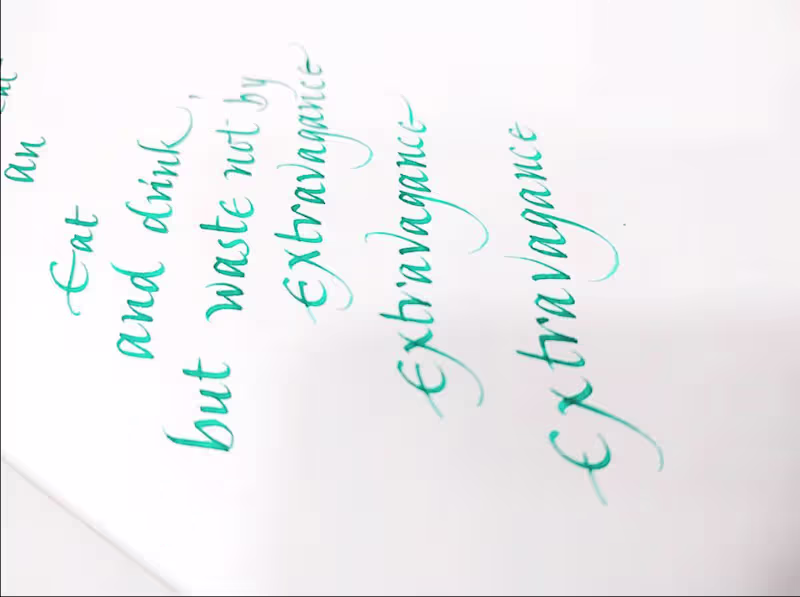 an
Eat
and drink,
but waste not by
Extravagance
Extravagance
Extravagance